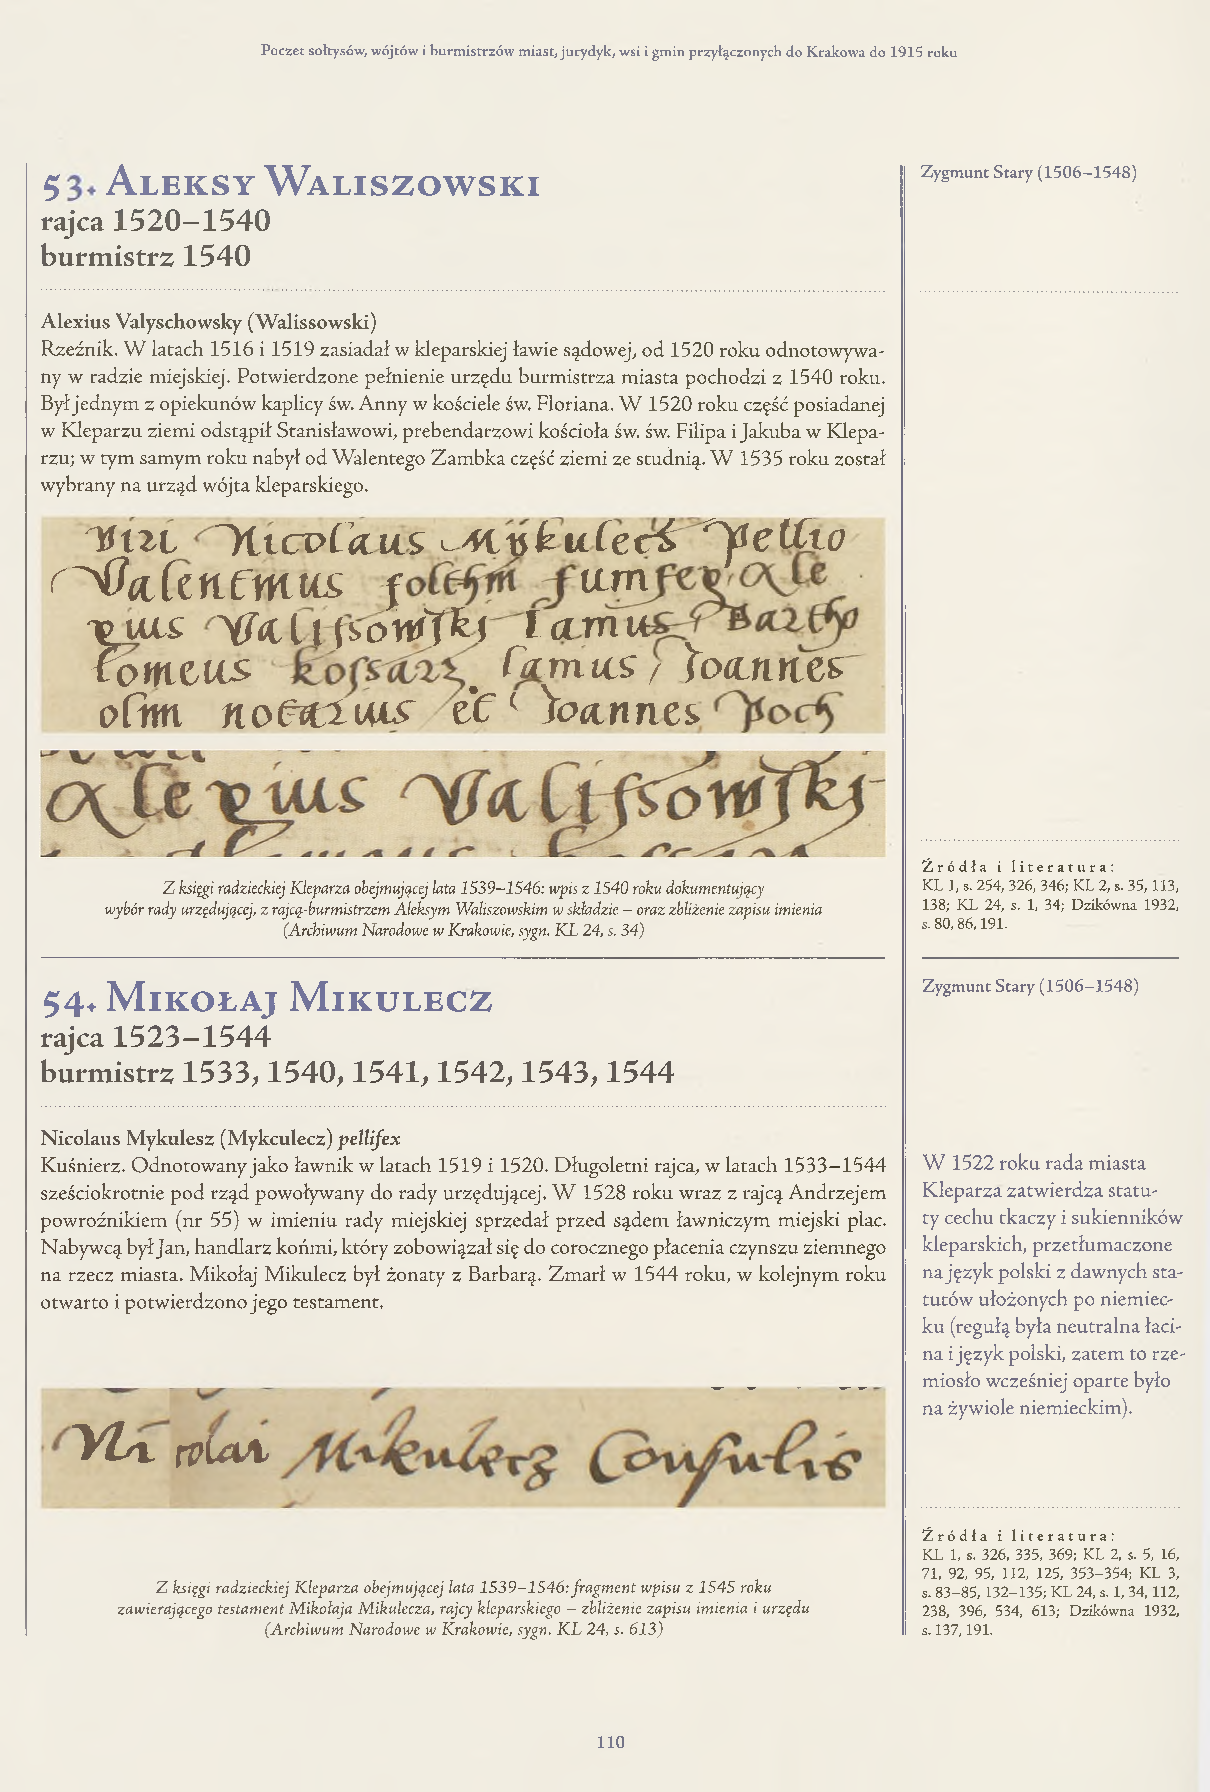 Poczet sołtysów, wójtów i burmistrzów miast, jurydyk, wsi i gmin przyłączonych do Krakowa do 1915 roku
53. Aleksy Waliszowski
rajca 1520–1540
burmistrz 1540
Zygmunt Stary (1506–1548)
Alexius Valyschowsky (Walissowski)
Rzeźnik. W latach 1516 i 1519 zasiadał w kleparskiej ławie sądowej, od 1520 roku odnotowywa-
ny w radzie miejskiej. Potwierdzone pełnienie urzędu burmistrza miasta pochodzi z 1540 roku.
Był jednym z opiekunów kaplicy św. Anny w kościele św. Floriana. W 1520 roku część posiadanej
w Kleparzu ziemi odstąpił Stanisławowi, prebendarzowi kościoła św. św. Filipa i Jakuba w Klepa-
rzu; w tym samym roku nabył od Walentego Zambka część ziemi ze studnią. W 1535 roku został
wybrany na urząd wójta kleparskiego.
Viri Nicolaus Mykulecz Pellio
Valentinus
xius Valissowski lanius Bartho
lomeus kossarz lanius Joannes
olim notarius et Joannes
Alexius Valissowski
Z księgi radzieckiej Kleparza obejmującej lata 1539–1546: wpis z 1540 roku dokumentujący
wybór rady urzędującej, z rajcą-burmistrzem Aleksym Waliszowskim w składzie – oraz zbliżenie zapisu imienia
(Archiwum Narodowe w Krakowie, sygn. KL 24, s. 34)
Źródła i literatura:
KL 1, s. 254, 326, 346; KL 2, s. 35, 113,
138; KL 24, s. 1, 34; Dzikówna 1932,
s. 80, 86, 191.
54. Mikołaj Mikulecz
rajca 1523–1544
burmistrz 1533, 1540, 1541, 1542, 1543, 1544
Zygmunt Stary (1506–1548)
Nicolaus Mykulesz (Mykculecz) pellifex
Kuśnierz. Odnotowany jako ławnik w latach 1519 i 1520. Długoletni rajca, w latach 1533–1544
sześciokrotnie pod rząd powoływany do rady urzędującej. W 1528 roku wraz z rajcą Andrzejem
powroźnikiem (nr 55) w imieniu rady miejskiej sprzedał przed sądem ławniczym miejski plac.
Nabywcą był Jan, handlarz końmi, który zobowiązał się do corocznego płacenia czynszu ziemnego
na rzecz miasta. Mikołaj Mikulecz był żonaty z Barbarą. Zmarł w 1544 roku, w kolejnym roku
otwarto i potwierdzono jego testament.
W 1522 roku rada miasta
Kleparza zatwierdza statu-
ty cechu tkaczy i sukienników
kleparskich, przetłumaczone
na język polski z dawnych sta-
tutów ułożonych po niemiec-
ku (regułą była neutralna łaci-
na i język polski, zatem to rze-
miosło wcześniej oparte było
na żywiole niemieckim).
Nicolai Mikulecz Consulis
Z księgi radzieckiej Kleparza obejmującej lata 1539–1546: fragment wpisu z 1545 roku
zawierającego testament Mikołaja Mikulecza, rajcy kleparskiego – zbliżenie zapisu imienia i urzędu
(Archiwum Narodowe w Krakowie, sygn. KL 24, s. 613)
Źródła i literatura:
KL 1, s. 326, 335, 369; KL 2, s. 5, 16,
71, 92, 95, 112, 125, 353–354; KL 3,
s. 83–85, 132–135; KL 24, s. 1, 34, 112,
238, 396, 534, 613; Dzikówna 1932,
s. 137, 191.
110